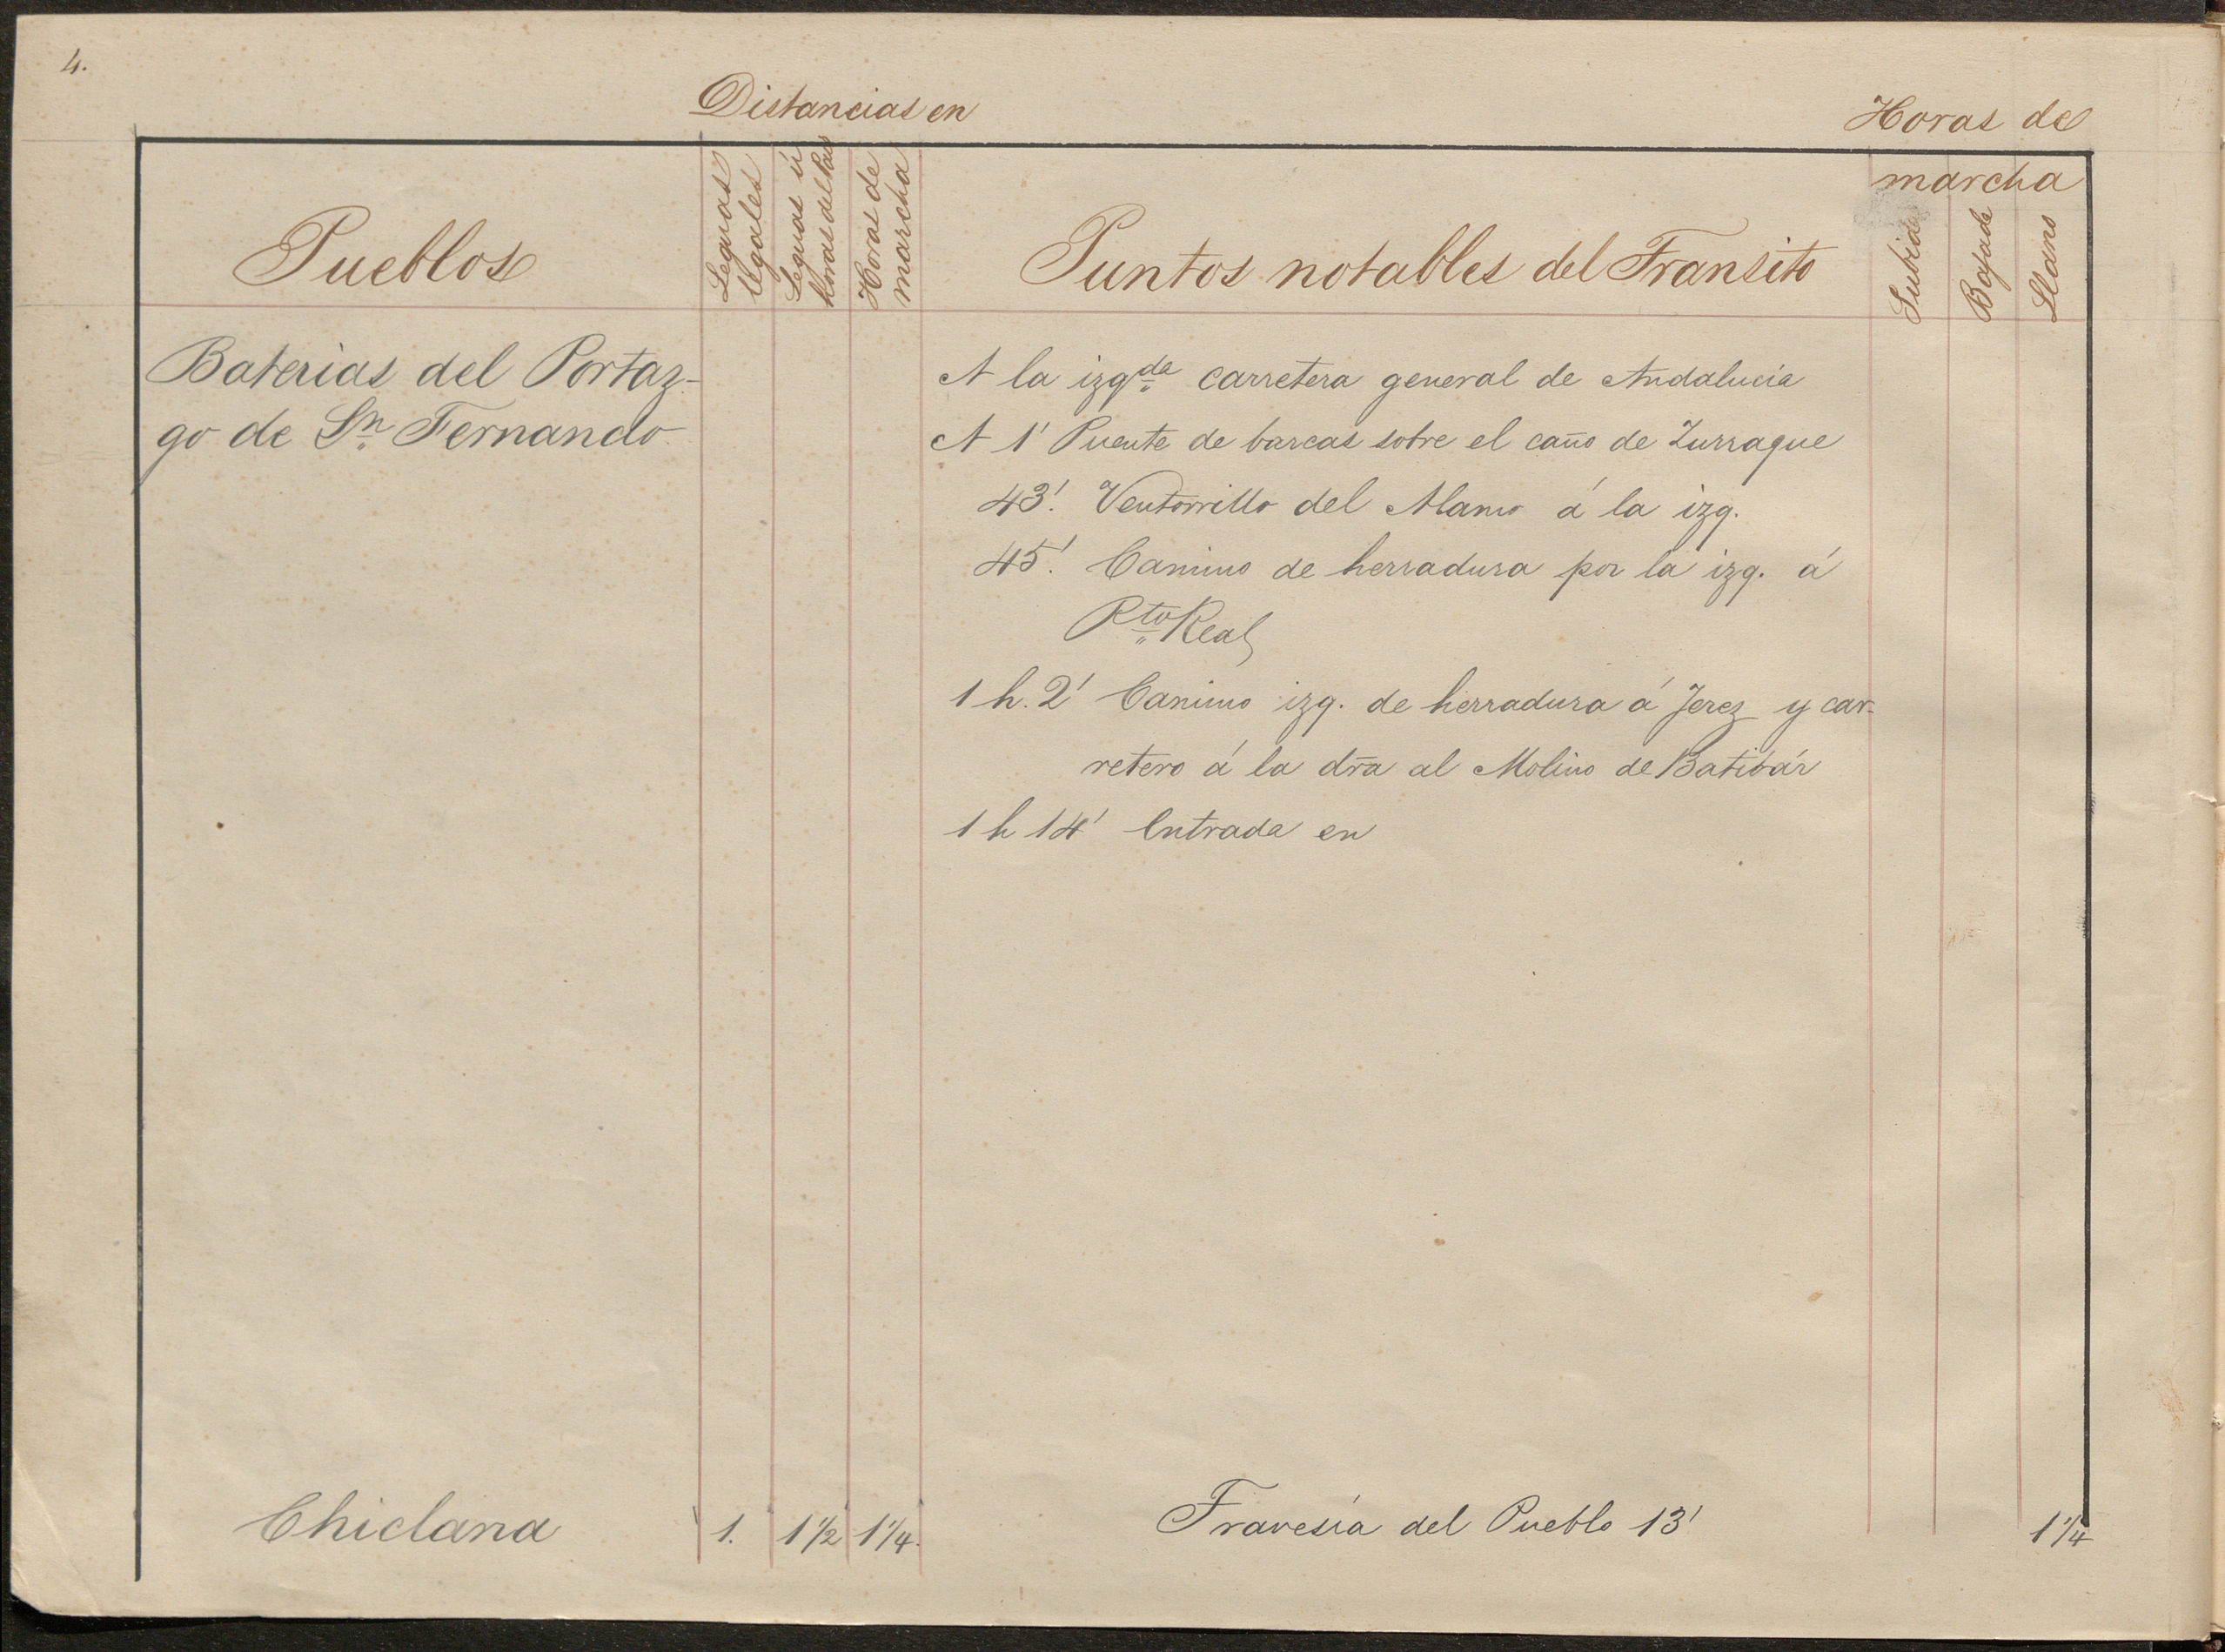 4.
Distancias en
Horas de
marcha
Pueblos
Leguas
legales
Leguas ú
horas del Pais
Horas de
marcha
Puntos notables del Transito
Subida
Bajada
Llano
Baterias del Portaz-
go de Sn. Fernando
A la izqda. carretera general de Andalucia
A 1' Puente de barcas sobre el caño de Zurraque
43'. Ventorrillo del Alamo á la izq.
45'. Camino de herradura por la izq. á
Pto. Real
1 h. 2' Camino izq. de herradura á Jerez y car-
retero á la dra al Molino de Batibár
1 h 14' Entrada en
Chiclana 1. 1 1/2 1 1/4. Travesía del Pueblo 13' 1 1/4